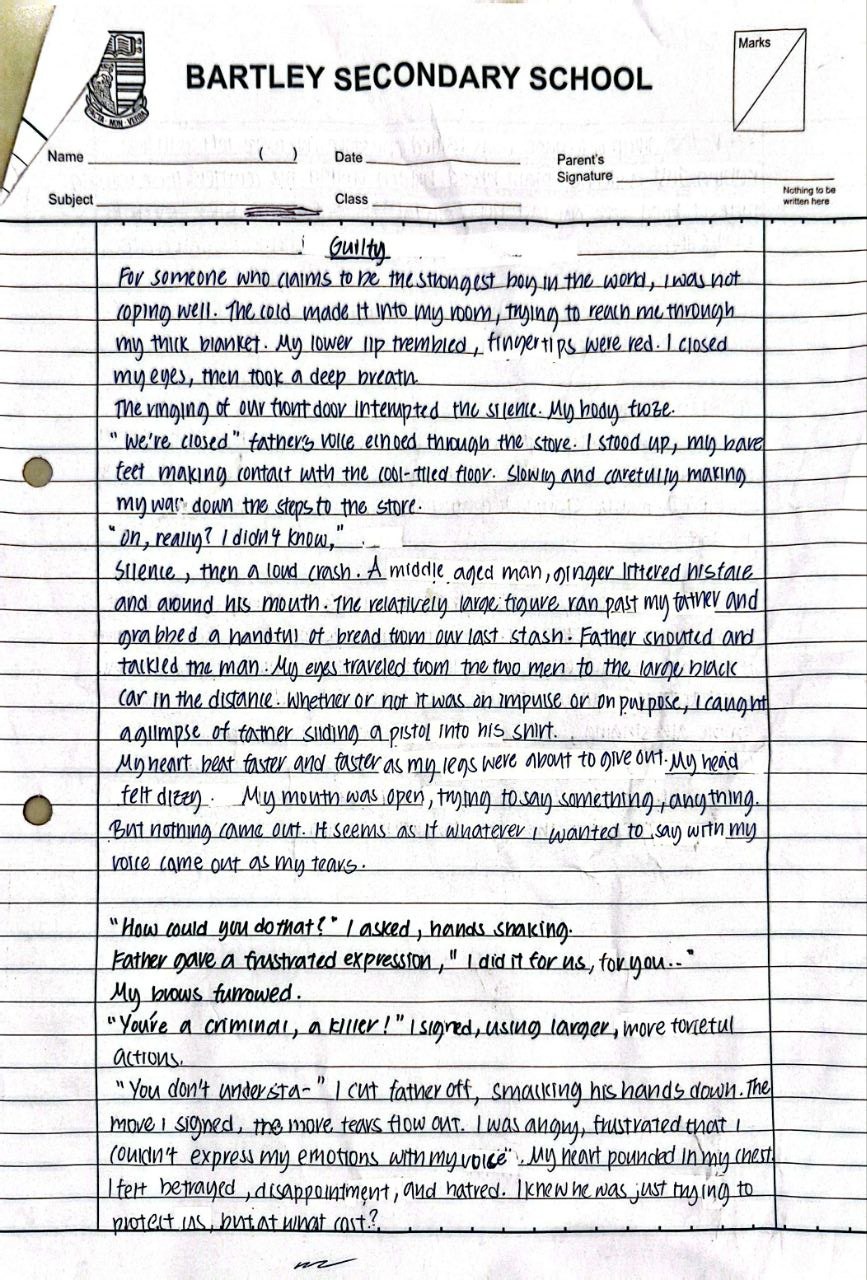 BARTLEY SECONDARY SCHOOL
Marks
Name ( ) Date Parent's Signature
Subject Class
Nothing to be written here
Guilty
For someone who claims to be the strongest boy in the world, I was not
coping well. The cold made it into my room, trying to reach me through
my thick blanket. My lower lip trembled, fingertips were red. I closed
my eyes, then took a deep breath.
The ringing of our front door interrupted the silence. My body froze.
"We're closed" father's voice echoed through the store. I stood up, my bare
feet making contact with the cool-tiled floor. Slowly and carefully making
my way down the steps to the store.
"Oh, really? I didn't know,"
Silence, then a loud crash. A middle aged man, ginger littered his face
and around his mouth. The relatively large figure ran past my father and
grabbed a handful of bread from our last stash. Father shouted and
tackled the man. My eyes traveled from the two men to the large black
car in the distance. Whether or not it was on impulse or on purpose, I caught
a glimpse of father sliding a pistol into his shirt.
My heart beat faster and faster as my legs were about to give out. My head
felt dizzy. My mouth was open, trying to say something, anything.
But nothing came out. It seems as if whatever I wanted to say with my
voice came out as my tears.
"How could you do that?" I asked, hands shaking.
Father gave a frustrated expression, "I did it for us, for you.."
My brows furrowed.
"You're a criminal, a killer!" I signed, using larger, more forceful
actions.
"You don't understa-" I cut father off, smacking his hands down. The
move I signed, the more tears flow out. I was angry, frustrated that I
couldn't express my emotions with my voice". My heart pounded in my chest.
I felt betrayed, disappointment, and hatred. I knew he was just trying to
protect us, but at what cost?